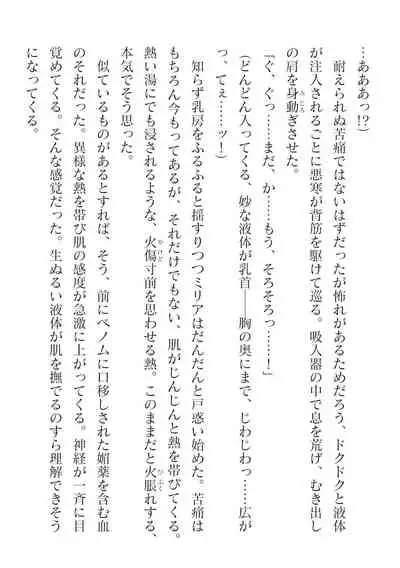 …あああっ!?)
　耐えられぬ苦痛ではないはずだったが怖れがあるためだろう、ドクドクと液体
が注入されるごとに悪寒が背筋を駆けて巡る。吸入器の中で息を荒げ、むき出し
の肩を身動ぎさせた。
「ぐ、ぐっ……まだ、か……もう、そろそろっ……！」
(どんどん入ってくる、妙な液体が乳首――胸の奥にまで、じわじわっ……広が
っ、てぇ――ッ！)
　知らず乳房をふるふると揺すりつつミリアはだんだんと戸惑い始めた。苦痛は
もちろん今もってあるが、それだけでもない、肌がじんじんと熱を帯びてくる。
熱い湯にでも浸されるような、火傷寸前を思わせる熱。このままだと火脹れする、
本気でそう思った。
　似ているものがあるとすれば、そう、前にベノムに口移しされた媚薬を含む血
のそれだった。異様な熱を帯び肌の感度が急激に上がってくる。神経が一斉に目
覚めてくる。そんな感覚だった。生ぬるい液体が肌を撫でるのすら理解できそう
になってくる。